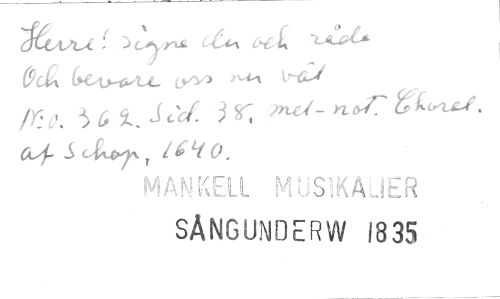 Herre! signe du och råde
Och bevare oss nu väl
N:o. 362. Sid. 38, mel-not. Choral.
af Schop, 1640.
MANKELL MUSIKALIER
SÅNGUNDERW 1835